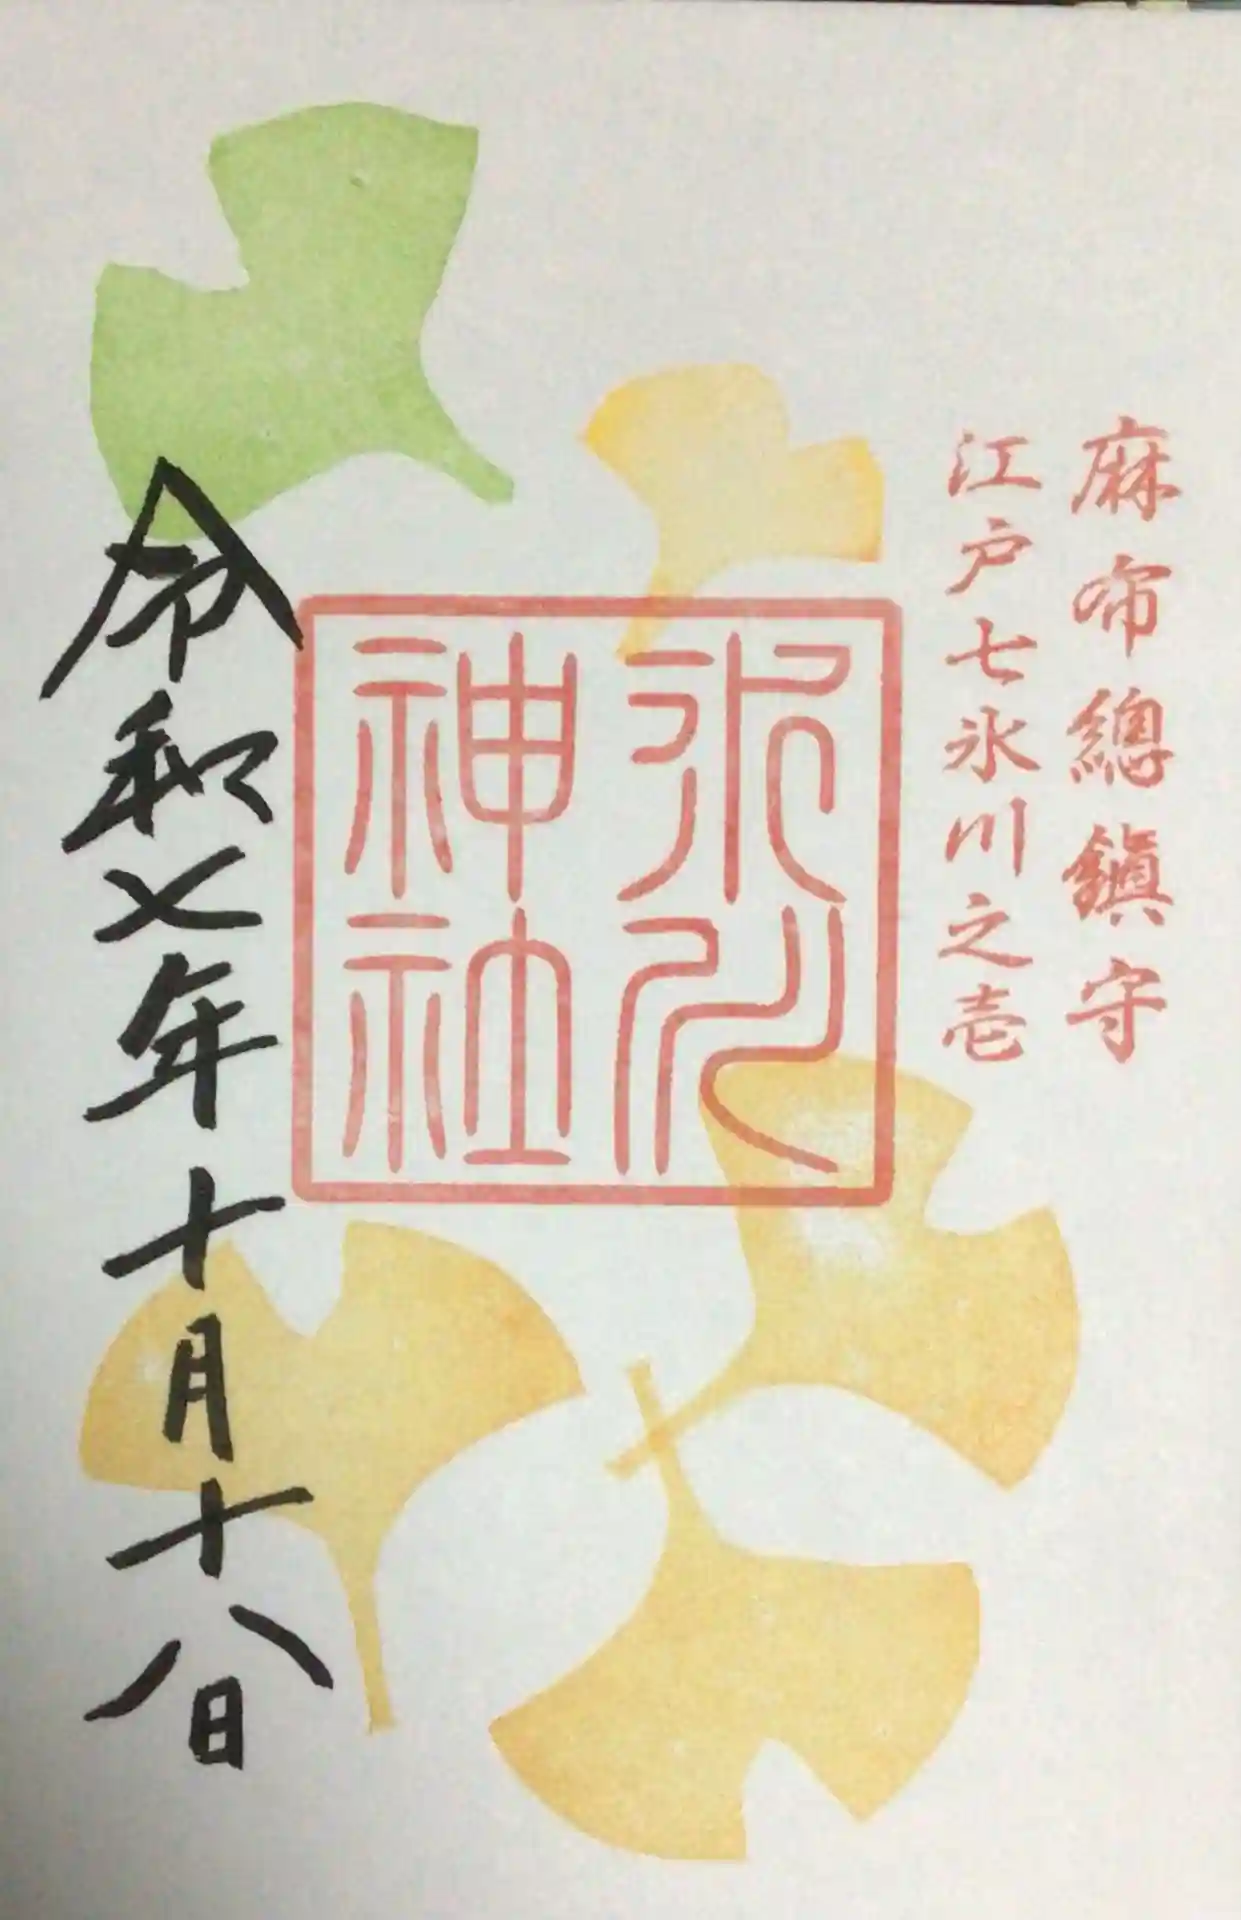 麻布總鎭守
江戸七氷川之壱
氷川
神社
令和七年十月十八日